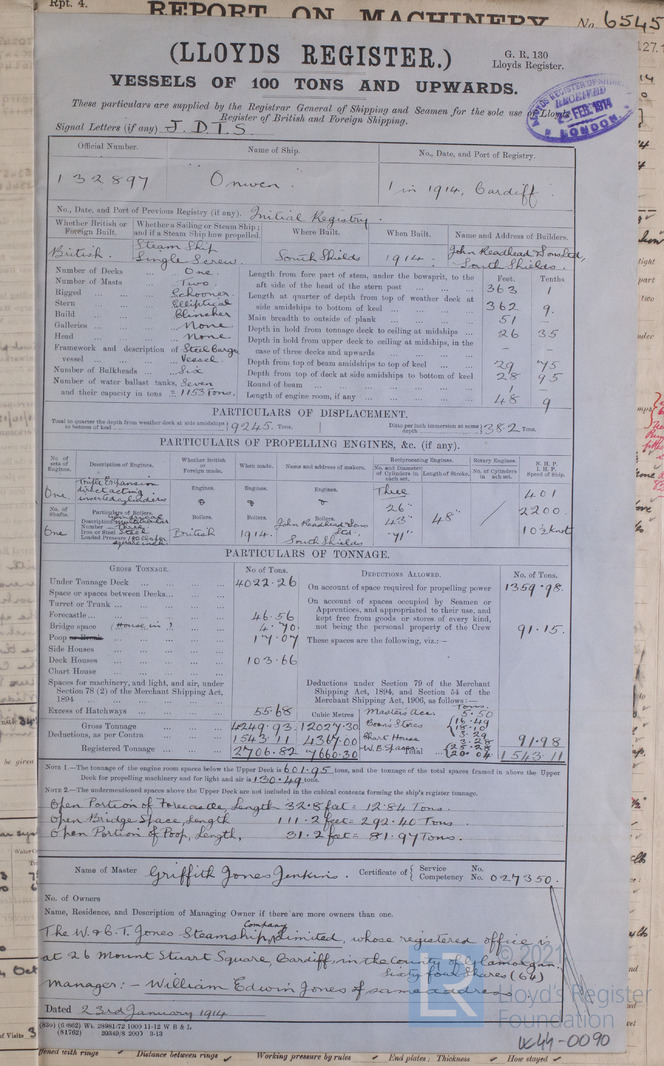 Rpt. 4.
REPORT ON MACHINERY
No. 6545
(LLOYDS REGISTER.)
G. R. 130
Lloyds Register.
VESSELS OF 100 TONS AND UPWARDS.
These particulars are supplied by the Registrar General of Shipping and Seamen for the sole use of Lloyds
Register of British and Foreign Shipping.
RECEIVED
FEB. 1914
LONDON.
Signal Letters (if any) J. D. T. S.
Official Number. Name of Ship. No., Date, and Port of Registry.
132897 Onwen. 1 in 1914, Cardiff
No., Date, and Port of Previous Registry (if any). Initial Registry.
Whether British or Foreign Built. Whether a Sailing or Steam Ship; and if a Steam Ship how propelled. Where Built. When Built. Name and Address of Builders.
British. Steam Ship Single Screw. South Shields 1914. John Readhead & Sons Ltd, South Shields.
Feet. Tenths
Number of Decks ... One. Length from fore part of stem, under the bowsprit, to the
Number of Masts ... Two. aft side of the head of the stern post 363 1
Rigged ... Schooner Length at quarter of depth from top of weather deck at
Stern ... Elliptical side amidships to bottom of keel 362 9.
Build ... Clincher Main breadth to outside of plank 51
Galleries ... None Depth in hold from tonnage deck to ceiling at midships 26 35
Head ... None. Depth in hold from upper deck to ceiling at midships, in the
Framework and description of vessel Steel Cargo Vessel. case of three decks and upwards - -
Number of Bulkheads Six Depth from top of beam amidships to top of keel 29 75
Number of water ballast tanks, Seven Depth from top of deck at side amidships to bottom of keel 28 95
and their capacity in tons = 1153 Tons. Round of beam 1
Length of engine room, if any 48 9
PARTICULARS OF DISPLACEMENT.
Total to quarter the depth from weather deck at side amidships to bottom of keel 9245. Tons. Ditto per inch immersion at same depth 1382 Tons
PARTICULARS OF PROPELLING ENGINES, &c. (if any).
No. of sets of Engines. Description of Engines. Whether British or Foreign made. When made. Name and address of makers. Reciprocating Engines. Rotary Engines. N. H. P. I. H. P. Speed of Ship.
No. and Diameter of Cylinders in each set. Length of Stroke. No. of Cylinders in each set.
One Triple Expansion direct acting inverted cylinders Engines. Engines. Engines. Three 401
No. of Shafts. Particulars of Boilers. Boilers. Boilers. Boilers. 26" 48" 2200
One Description Number Iron or Steel Steel Loaded Pressure 180 British 1914. John Readhead & Sons Ltd. South Shields 43" 71" 10½ knots
PARTICULARS OF TONNAGE.
GROSS TONNAGE. No of Tons. DEDUCTIONS ALLOWED. No. of Tons.
Under Tonnage Deck 4022.26 On account of space required for propelling power 1359.98
Space or spaces between Decks On account of spaces occupied by Seamen or
Turret or Trunk Apprentices, and appropriated to their use, and
Forecastle 46.56 kept free from goods or stores of every kind,
Bridge space (House in) 4.70 not being the personal property of the Crew 91.15.
Poop 17.07 These spaces are the following, viz.:—
Side Houses
Deck Houses 103.66
Chart House
Spaces for machinery, and light, and air, under Deductions under Section 79 of the Merchant
Section 78 (2) of the Merchant Shipping Act, Shipping Act, 1894, and Section 54 of the
1894 Merchant Shipping Act, 1906, as follows:—
Excess of Hatchways 55.68 Cubic Metres Masters Acc. 5.50
Gross Tonnage 4249.93 12027.30 Bosn's Stores
Deductions, as per Contra 1543.11 4367.00 Chart House 91.98
Registered Tonnage 2706.82 7660.30 W.B. Spaces Total 1543.11
NOTE 1.—The tonnage of the engine room spaces below the Upper Deck is 601.95 tons, and the tonnage of the total spaces framed in above the Upper
Deck for propelling machinery and for light and air is 130.49 tons.
NOTE 2.—The undermentioned spaces above the Upper Deck are not included in the cubical contents forming the ship's register tonnage.
Open Portion of Forecastle, Length 32.8 feet = 12.84 Tons.
Open Bridge Space, Length 111.2 feet = 292.40 Tons.
Open Portion of Poop, Length, 31.2 feet = 81.97 Tons.
Name of Master Griffith Jones Jenkins. Certificate of { Service No. Competency No. 027350.
No. of Owners
Name, Residence, and Description of Managing Owner if there are more owners than one.
The W. & C. T. Jones Steamship Company Limited, whose registered office is
at 26 Mount Stuart Square, Cardiff, in the County of Glamorgan.
Sixty four Shares (64)
Manager: - William Edwin Jones of same address
Dated 23rd January 1914
(81762) 20349/8 2000 3-13
© 2021
Lloyd's Register
Foundation
LR
UC44-0090
Distance between rings Working pressure by rules End plates: Thickness How stayed